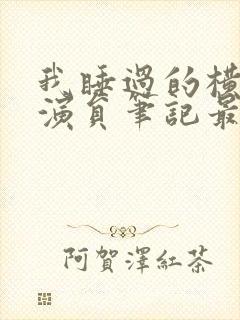 我睡過的橫
演員筆記最
阿賀澤紅茶